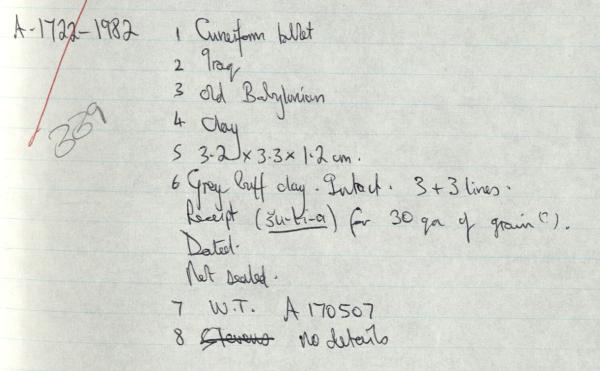 A-1722-1982
1 Cuneiform tablet
2 Iraq
3 Old Babylonian
4 Clay
5 3.2 x 3.3 x 1.2 cm.
339
6 Grey buff clay. Intact. 3+3 lines.
Receipt (šu-ti-a) for 30 qa of grain(?).
Dated.
Not sealed.
7 W.T. A 170507
8 Stevens no details